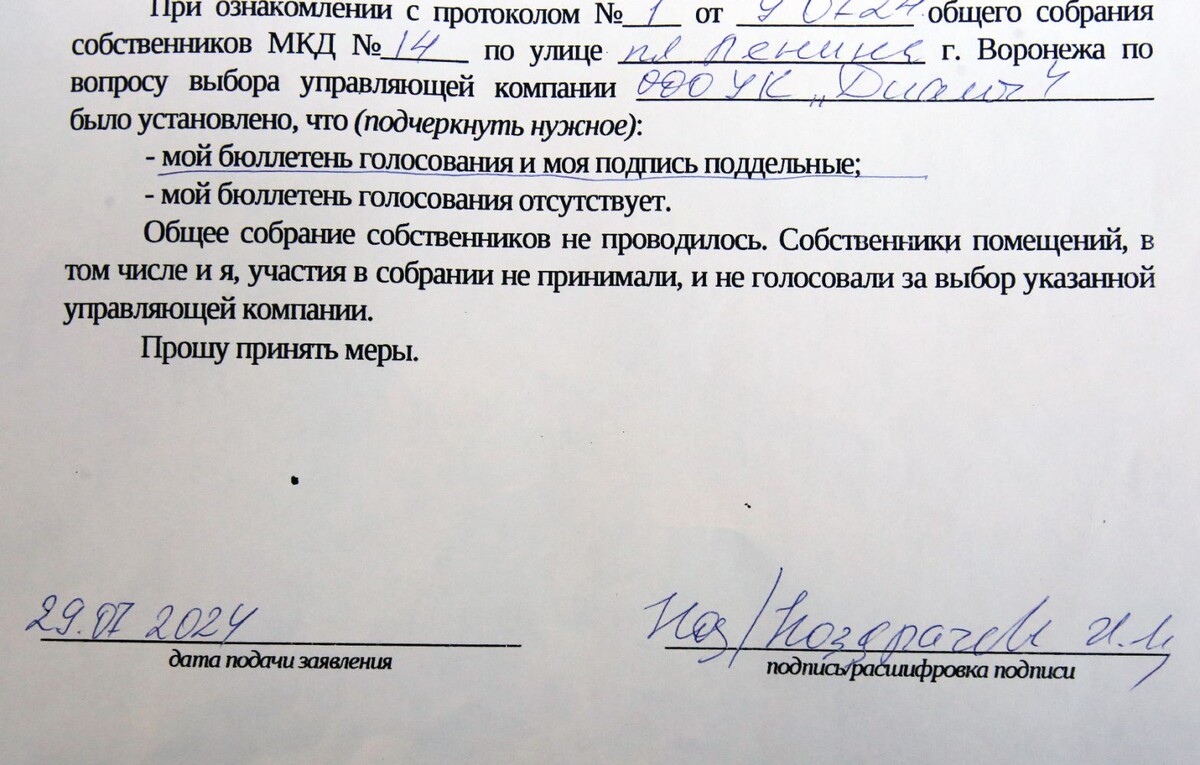 При ознакомлении с протоколом № 1 от 9 07.24. общего собрания
собственников МКД № 14 по улице пл Ленина г. Воронежа по
вопросу выбора управляющей компании ООО УК "
было установлено, что (подчеркнуть нужное):
- мой бюллетень голосования и моя подпись поддельные;
- мой бюллетень голосования отсутствует.
Общее собрание собственников не проводилось. Собственники помещений, в
том числе и я, участия в собрании не принимали, и не голосовали за выбор указанной
управляющей компании.
Прошу принять меры.
29.07 2024
Ноз/Ноздрачев И.И
дата подачи заявления
подпись/расшифровка подписи